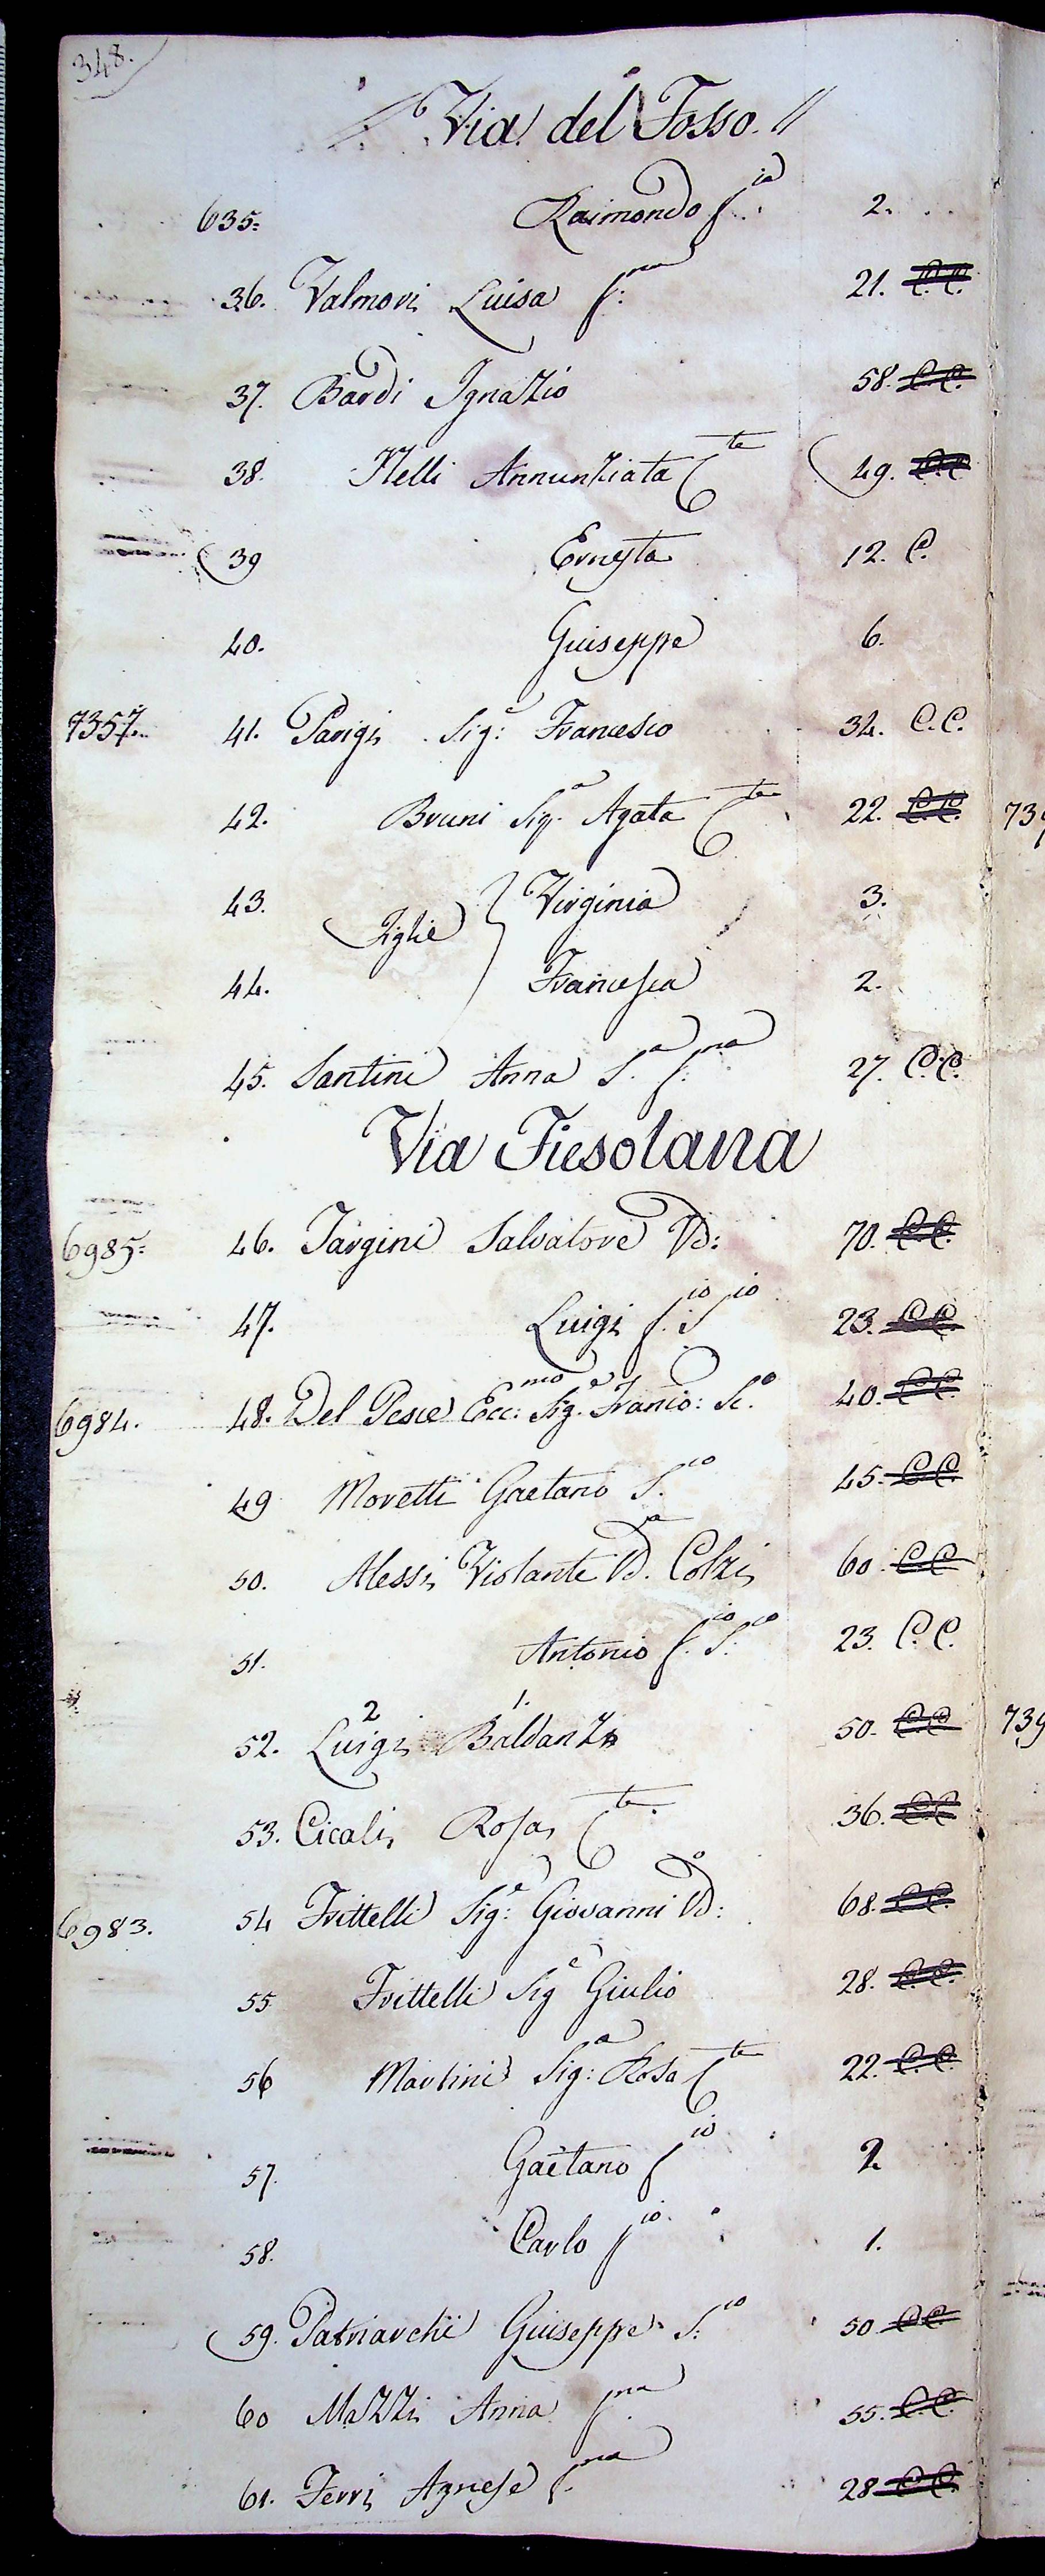 348.
Via del Fosso. //
635. Raimondo f.io 2.
36. Valmori Luisa f.na 21. C.C.
37. Bardi Ignazio 58. C.C.
38. Nelli Annunziata C.te 49. C.C.
39 Ernesta 12. C.
40. Giuseppe 6.
7357. 41. Parigi Sig.e Francesco 34. C.C.
42. Bruni Sig.a Agata C.te 22. C.C.
43. Virginia 3.
Figlie }
44. Francesca 2.
45. Santini Anna S.a f.na 27. C.C.
Via Fiesolana
6985. 46. Targini Salvatore Vd.o 70. C.C.
47. Luigi f.io S.io 23. C.C.
6984. 48. Del Pesce Ecc.mo Sig.e Franco: Sc.o 40. C.C.
49 Moretti Gaetano S.co 45. C.C.
50. Alessi Violante Vd.a Colzi 60. C.C.
51. Antonio f.io S.co 23. C.C.
2 1.
52. Luigi Baldanzi 50. C.C.
53. Cicali Rosa C.te 36. C.C.
6983. 54 Frittelli Sig.e Giovanni Vd.o 68. C.C.
55 Frittelli Sig.e Giulio 28. C.C.
56 Martini Sig.a Rosa C.te 22. C.C.
57. Gaetano f.io 2.
58. Carlo f.io 1.
59. Patriarchi Giuseppe S.co 50 C.C.
60 Mazzi Anna f.na 55. C.C.
61. Ferri Agnese f.na 28 C.C.